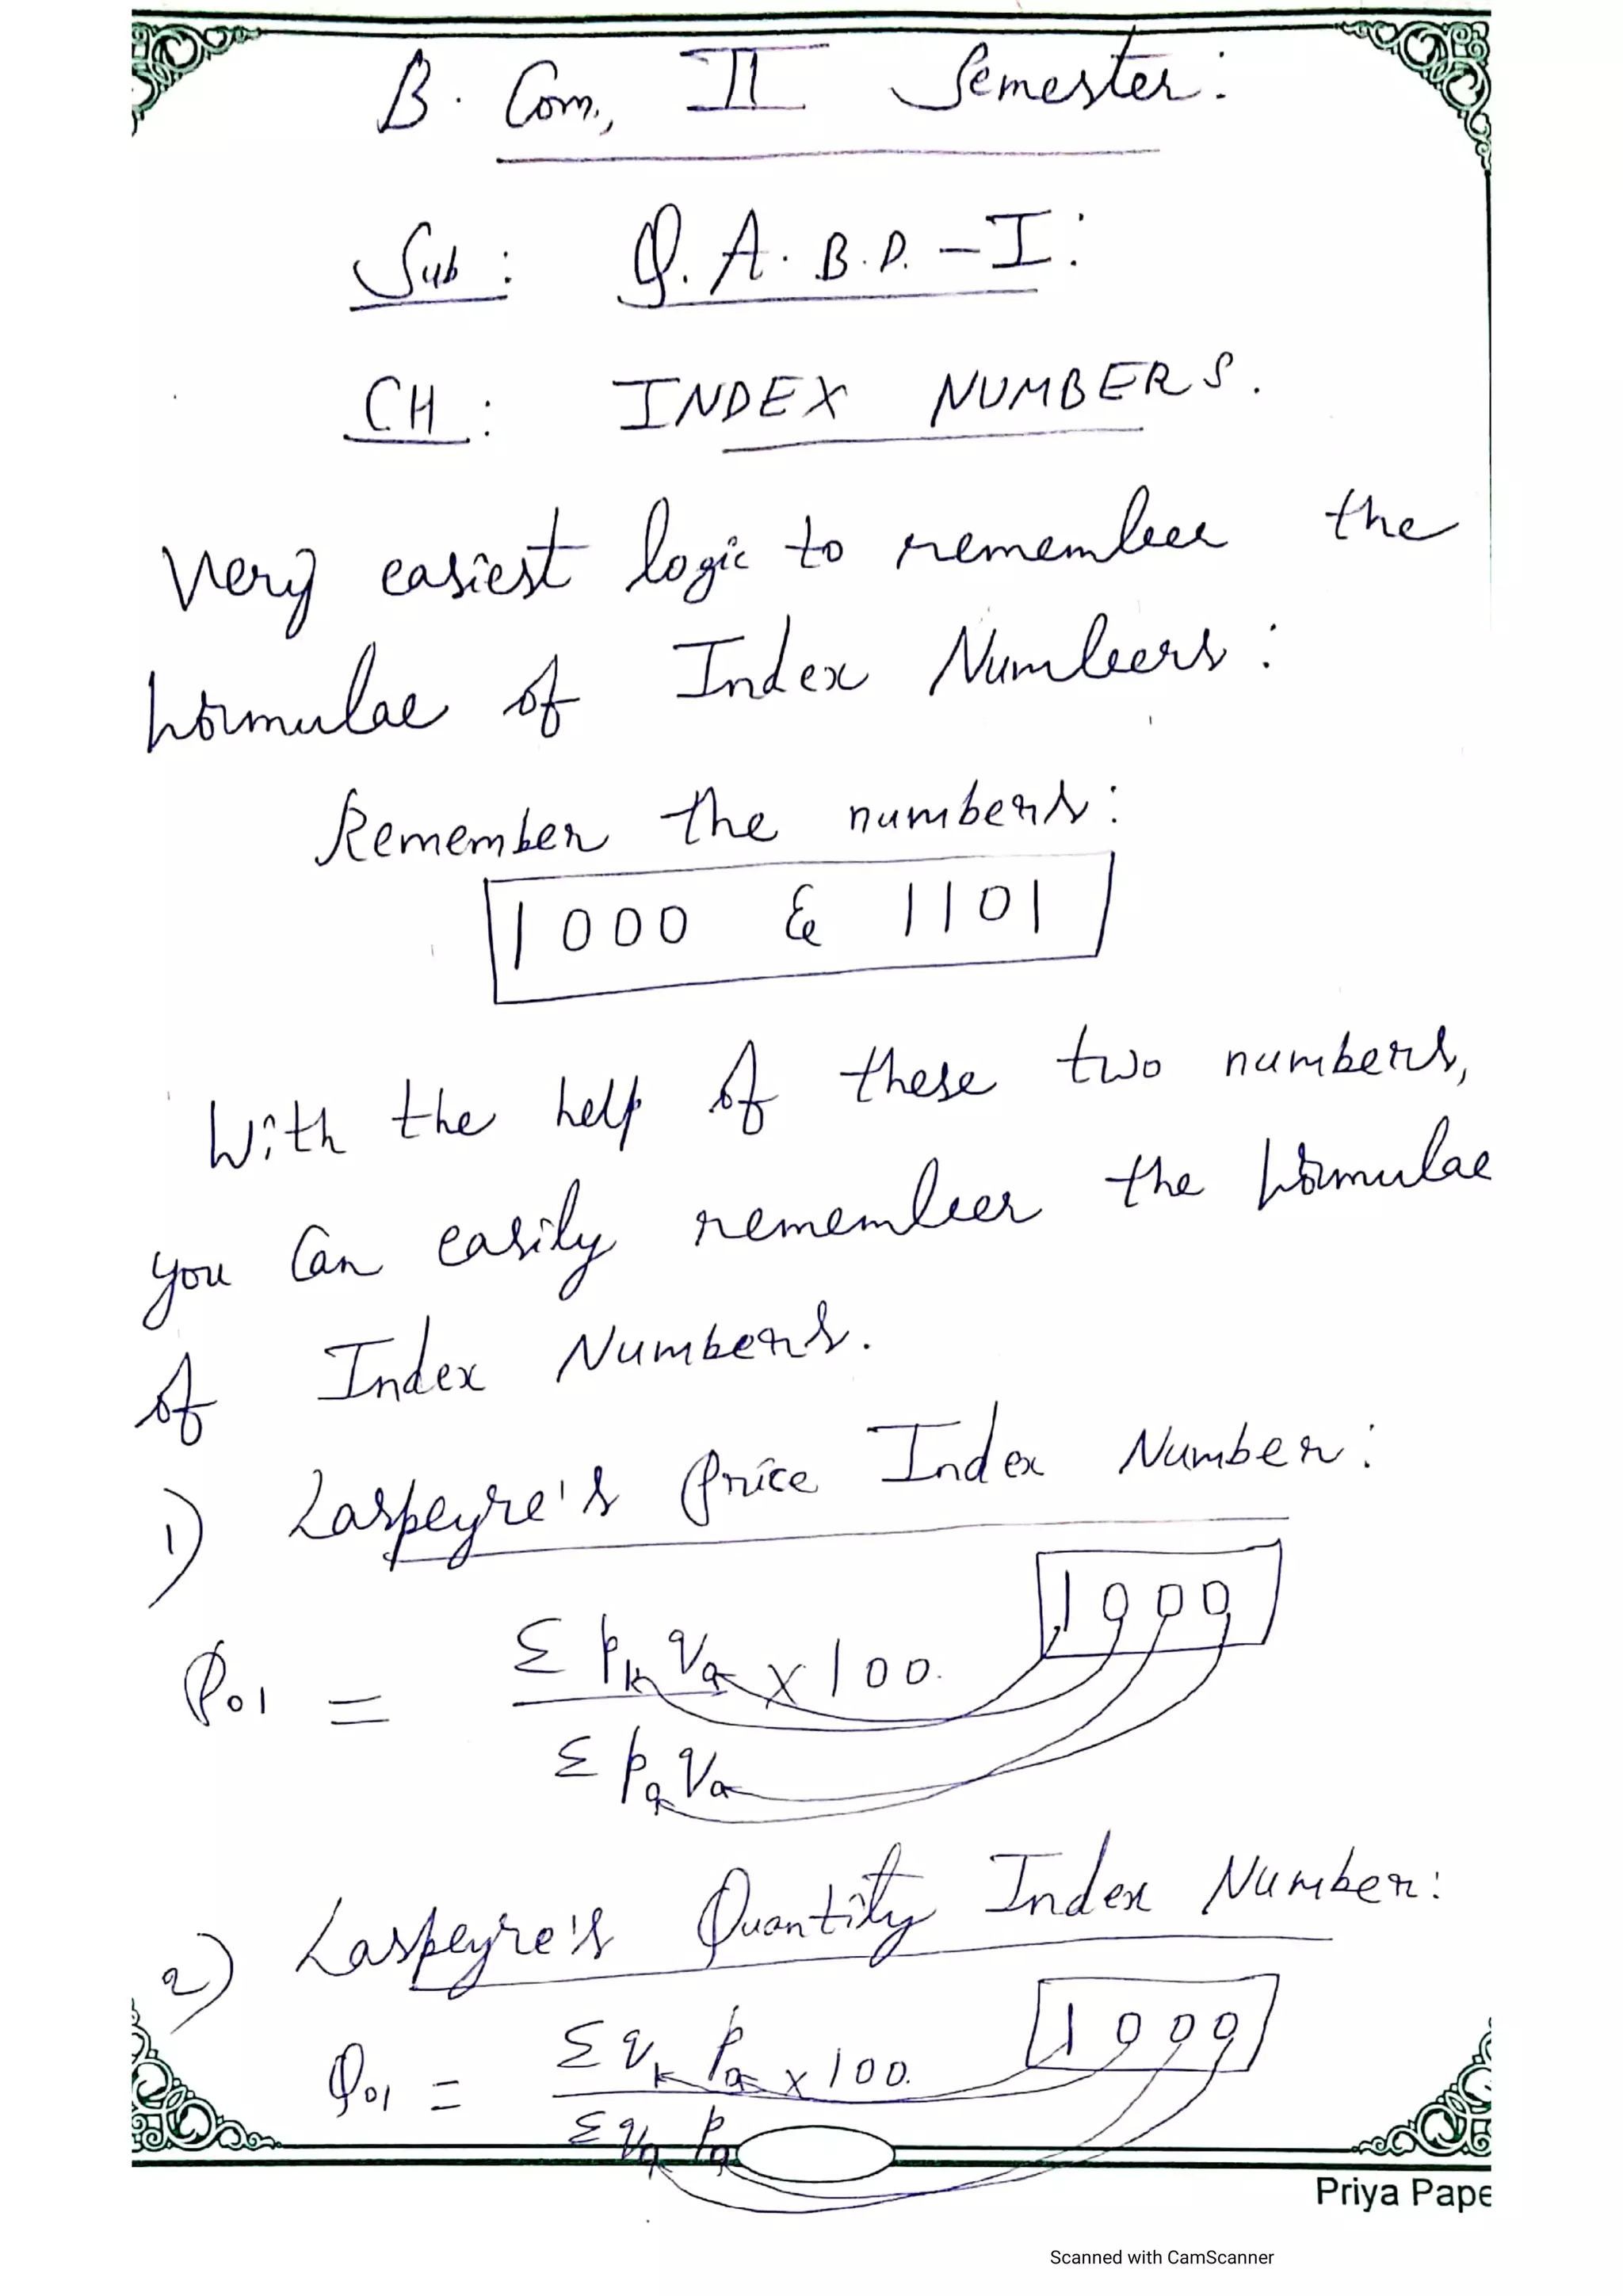 B. Com, II Semester:
Sub: Q.A.B.D.-I:
CH: INDEX NUMBERS.
Very easiest logic to remember the
formulae of Index Numbers:
Remember the numbers:
1000 & 1101
With the help of these two numbers,
you Can easily remember the formulae
of Index Numbers.
1) Laspeyre's Price Index Number:
1000
P₀₁ = Σp₁q₀ × 100.
Σp₀q₀
2) Laspeyre's Quantity Index Number:
1000
Q₀₁ = Σq₁p₀ × 100.
Σq₀p₀
Priya Pape
Scanned with CamScanner